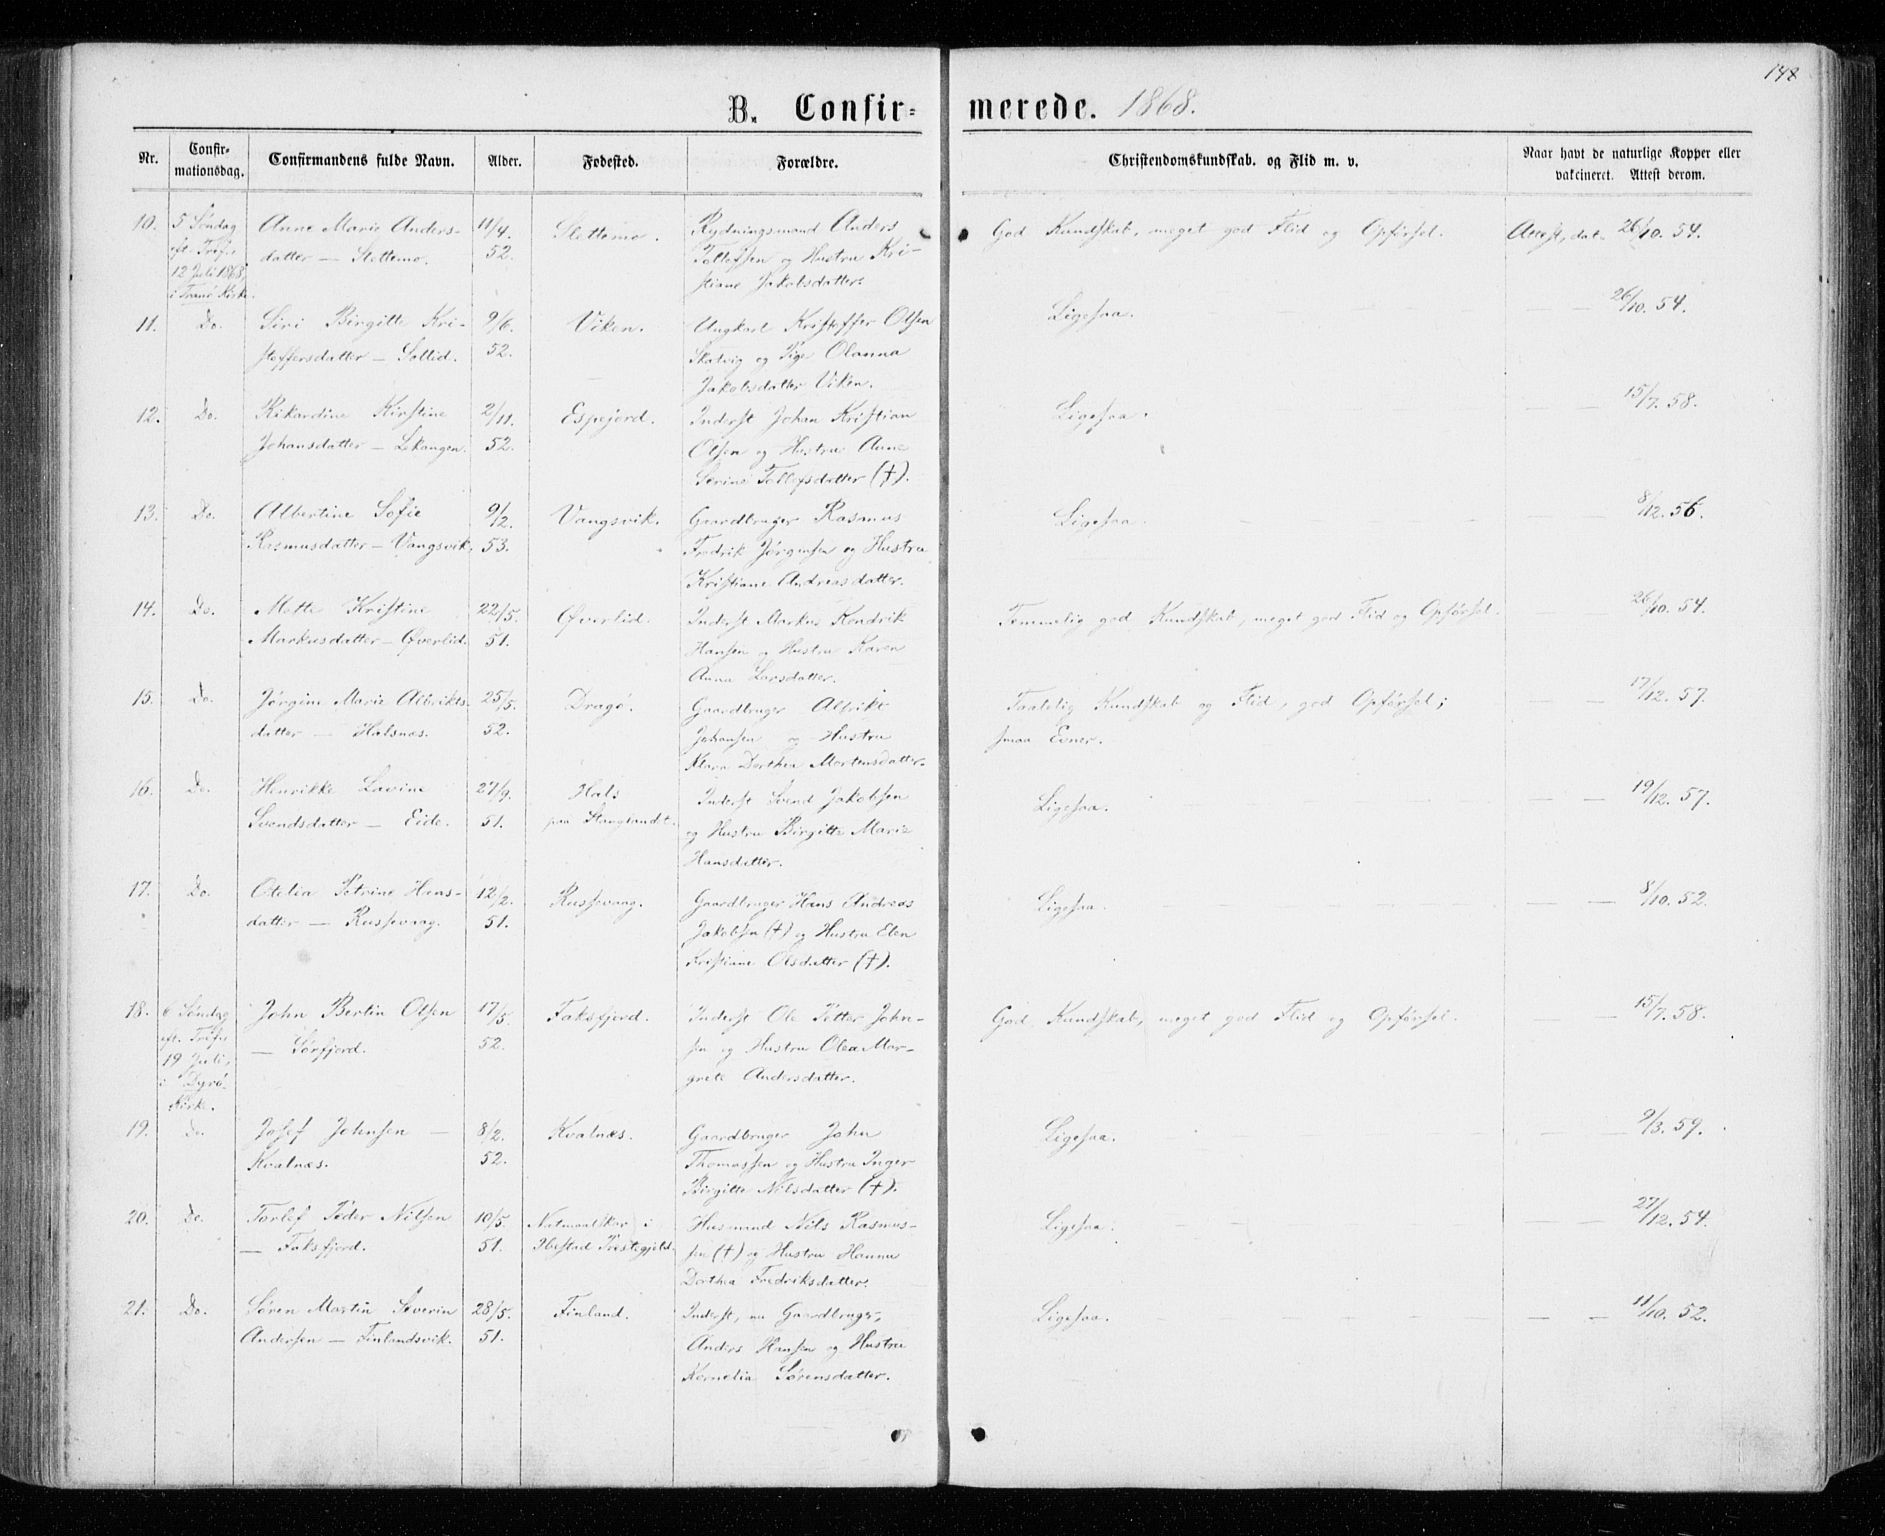 148
B. Confirmerede. 1868.
Nr.
Confirmationsdag.
Confirmandens fulde Navn.
Alder.
Fødested.
Forældre.
Christendomskundskab. og Flid m. v.
Naar havt de naturlige Kopper eller
vakcineret. Attest derom.
10. 5 Søndag Anne Marie Anders- 11/4. Slettemo. Rydningsmand Anders God Kundskab, meget god Flid og Opførsel. Attest, dat. 26/10. 54.
eft. Tref., datter — Slettemo. 52. Tollefsen og Hustru Kri-
12 Juli 1868, stiane Jakobsdatter.
i Tranø Kirke.
11. Do. Siri Birgitte Kri- 9/6. Viken. Ungkarl Kristoffer Olsen Ligesaa. — 26/10. 54.
stoffersdatter — Sollid. 52. Skatvig og Pige Olanna
Jakobsdatter Viken.
12. Do. Rikardine Kirstine 2/11. Espejord. Inderst Johan Kristian Ligesaa. — — 15/7. 58.
Johansdatter — Lekangen. 52. Olsen og Hustru Anne
Serine Tollefsdatter (†).
13. Do. Albertine Sofie 9/2. Vangsvik. Gaardbruger Rasmus Ligesaa. — — 8/12. 56.
Rasmusdatter — Vangsvik. 53. Fredrik Jørgensen og Hustru
Kristiane Andreasdatter.
14. Do. Mette Kristine 22/5. Øverlid. Inderst Markus Hendrik Temmelig god Kundskab, meget god Flid og Opførsel. — — 26/10. 54.
Markusdatter — Øverlid. 51. Hansen og Hustru Karen
Anna Larsdatter.
15. Do. Jørgine Marie Albrikts- 25/5. Dragø. Gaardbruger Albrikt Taalelig Kundskab og Flid, god Opførsel; — — 17/12. 57.
datter — Halsnæs. 52. Johansen og Hustru smaa Evner.
Klara Dorthea Mortensdatter.
16. Do. Henrikke Lavine 27/9. Hals Inderst Svend Jakobsen Ligesaa. — — 19/12. 57.
Svendsdatter — Eide. 51. paa Stanglandt. og Hustru Birgitte Marie
Hansdatter.
17. Do. Otelia Petrine Hans- 12/2. Russevaag. Gaardbruger Hans Andreas Ligesaa. — — 8/10. 52.
datter — Russevaag. 51. Jakobsen (†) og Hustru Elen
Kristiane Olsdatter (†).
18. 6 Søndag John Bertin Olsen 17/5. Faksfjord. Inderst Ole Petter John- God Kundskab, meget god Flid og Opførsel. — — 15/7. 58.
eft. Tref., — Sørfjord. 52. sen og Hustru Olea Mar-
19 Juli, grete Andersdatter.
i Dyrø
Kirke.
19. Do. Josef Johnsen — 8/2. Kvalnæs. Gaardbruger John Ligesaa. — — 9/3. 59.
Kvalnæs. 52. Thomassen og Hustru Inger
Birgitte Nilsdatter (†).
20. Do. Torlef Peder Nilsen 10/5. i Husmand Nils Rasmus- Ligesaa. — — 27/12. 54.
— Faksfjord. 51. Ibestad Prestegjeld. sen (†) og Hustru Hanna
Dorthea Fredriksdatter.
21. Do. Søren Martin Severin 28/5. Finland. Inderst, nu Gaardbruger, Ligesaa. — — 11/10. 52.
Andersen — Finlandsvik. 51. Anders Hansen og Hustru
Kornelia Sørensdatter.